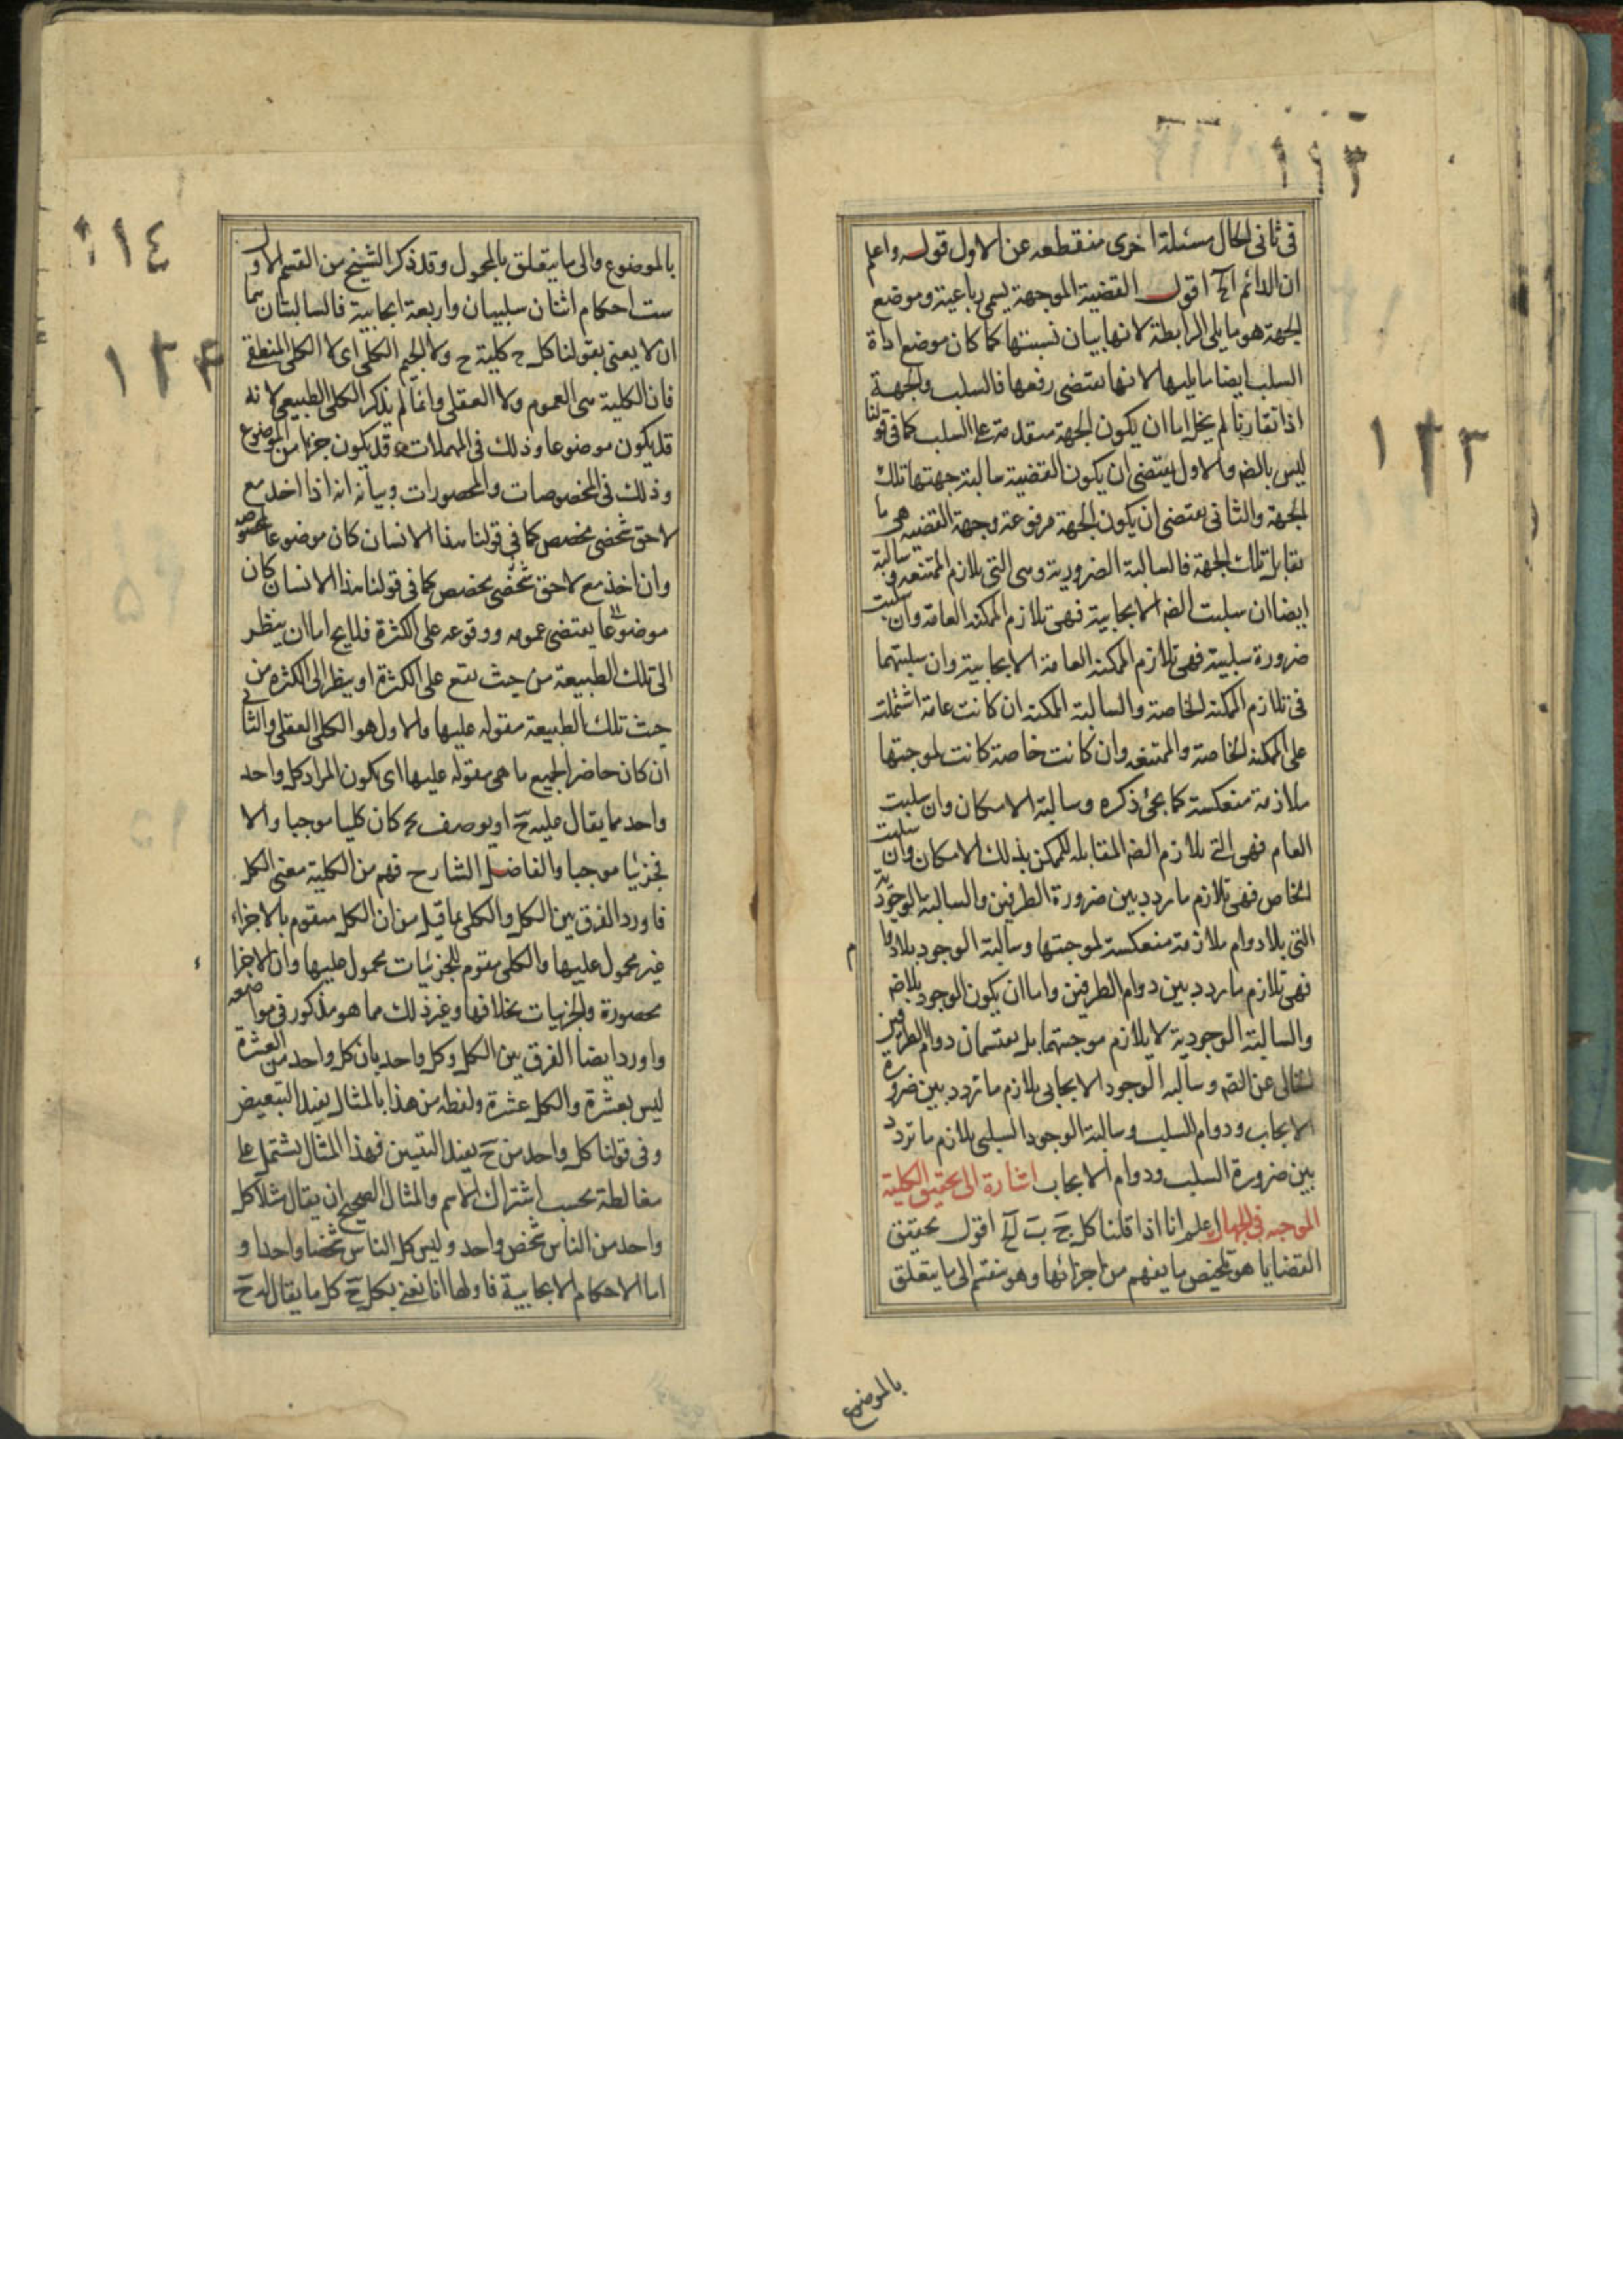 ١١٣
١٢٣
فى ثانى الحال مسئلة اخرى منقطعه عن الاول قوله واعلم
ان الدائم الخ اقول القضية الموجهة يسمى رباعية وموضع
الجهة هو ما يلى الرابطة لانها بيان نسبتها كما كان موضع اداة
السلب ايضا ما يليها لانها يقتضى رفعها فالسلب والجهة
اذا تقارنا لم يخل اما ان يكون الجهة متقدمة على السلب كما فى قولنا
ليس بالضه والاول يقتضى ان يكون القضية سالبة جهتها تلك
الجهة والثانى يقتضى ان يكون الجهة مرفوعة وجهة القضيه هى ما
يقابل تلك الجهة فالسالبة الضرورية وهى التى يلازم الممتنعه و سالبة
ايضا ان سلبت الضه الايجابية فهى تلازم الممكنه العامة وان سلبت
ضرورة سلبية فهى تلازم الممكنه العامة الايجابية وان سلبتهما
فى تلازم الممكنه الخاصة والسالبة الممكنه ان كانت عامة اشتملت
على الممكنه الخاصة والممتنعه وان كانت خاصة كانت لموجبتها
ملازمة منعكسة كما يجئ ذكره وسالبة الامكان وان سلبت
العام فهى التى يلازم الضه المقابله للممكن بذلك الامكان وان سلبت
الخاص فهى تلازم ما يردد بين ضرورة الطرفين والسالبة الوجودية
التى بلا دوام ملازمة منعكسة لموجبتها وسالبة الوجود بلا دوا
م
فهى تلازم ما يردد بين دوام الطرفين واما ان يكون الوجود بلا ضه
والسالبة الوجودية لا يلازم موجبتها بل يقتسمان دوام الطرفين
الخالى عن الضه وسالبه الوجود الايجابى يلازم ما تردد بين ضرورة
الايجاب ودوام السلب وسالبة الوجود السلبى يلازم ما تردد
بين ضرورة السلب ودوام الايجاب اشارة الى تحقيق الكلية
الموجبه فى الجهات اعلم انا اذا قلنا كل ج ب الخ اقول تحقيق
القضايا هو تلخيص ما يفهم من اجزائها وهو منقسم الى ما يتعلق
بالموضوع
١١٤
١٢٤
بالموضوع والى ما يتعلق بالمحمول وقد ذكر الشيخ من القسم الاول
ست احكام اثنان سلبيان واربعة ايجابية فالسالبتان هما
ان لا يعنى بقولنا كل ج كلية ج ولا الجيم الكلى اى لا الكلى المنطقى
فان الكلية هى العموم ولا العقلى وانما لم يذكر الكلى الطبيعى لانه
قد يكون موضوعا وذلك فى المهملات وقد يكون جزءا من الموضوع
وذلك فى المخصوصات والمحصورات وبيانه انه اذا اخذ مع
لاحق شخصى مخصص كما فى قولنا هذا الانسان كان موضوعا لمخصوصه
وان اخذ مع لاحق شخصى يخصص كما فى قولنا هذا الانسان كان
موضوعا يقتضى عمومه ووقوعه على الكثرة فلا يخ اما ان ينظر
الى تلك الطبيعة من حيث تقع على الكثرة او ينظر الى الكثره من
حيث تلك الطبيعة مقوله عليها والاول هو الكلى العقلى والثانى
ان كان حاضر الجميع ما هى مقوله عليها اى يكون المراد كل واحد
واحد مما يقال عليه ج او يوصف بج كان كليا موجبا والا
فجزئيا موجبا والفاضل الشارح فهم من الكلية معنى الكل
فاورد الفرق بين الكل والكلى بما قيل من ان الكل متقوم بالاجزاء
غير محمول عليها والكلى مقوم للجزئيات محمول عليها وان الاجزا
ء
محصورة والجزئيات بخلافها وغير ذلك مما هو مذكور فى مواضعه
واورد ايضا الفرق بين الكل وكل واحد بان كل واحد من العشرة
ليس بعشرة والكل عشرة ولفظه من هذا بالمثال يفيد التبعيض
وفى قولنا كل واحد من ج يفيد التبيين فهذا المثال يشتمل على
مغالطة بحسب اشتراك الاسم والمثال الصحيح ان يقال مثلا كل
واحد من الناس شخص واحد وليس كل الناس شخصا واحدا و
اما الاحكام الايجابية فاولها انا نعنى بكل ج كل ما يقال له ج